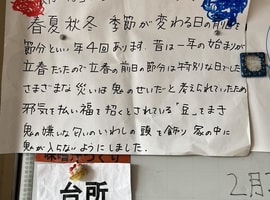 春夏秋冬 季節が変わる日の前日を
節分といい年4回あります。昔は一年の始まりが
立春だったので立春の前日の節分は特別な日でした
さまざまな災いは鬼のせいだと考えられていたため
邪気を払い福を招くとされている「豆」をまき
鬼の嫌いな匂いのいわしの頭を飾り 家の中に
鬼が入らないようにしました。
台所
2月